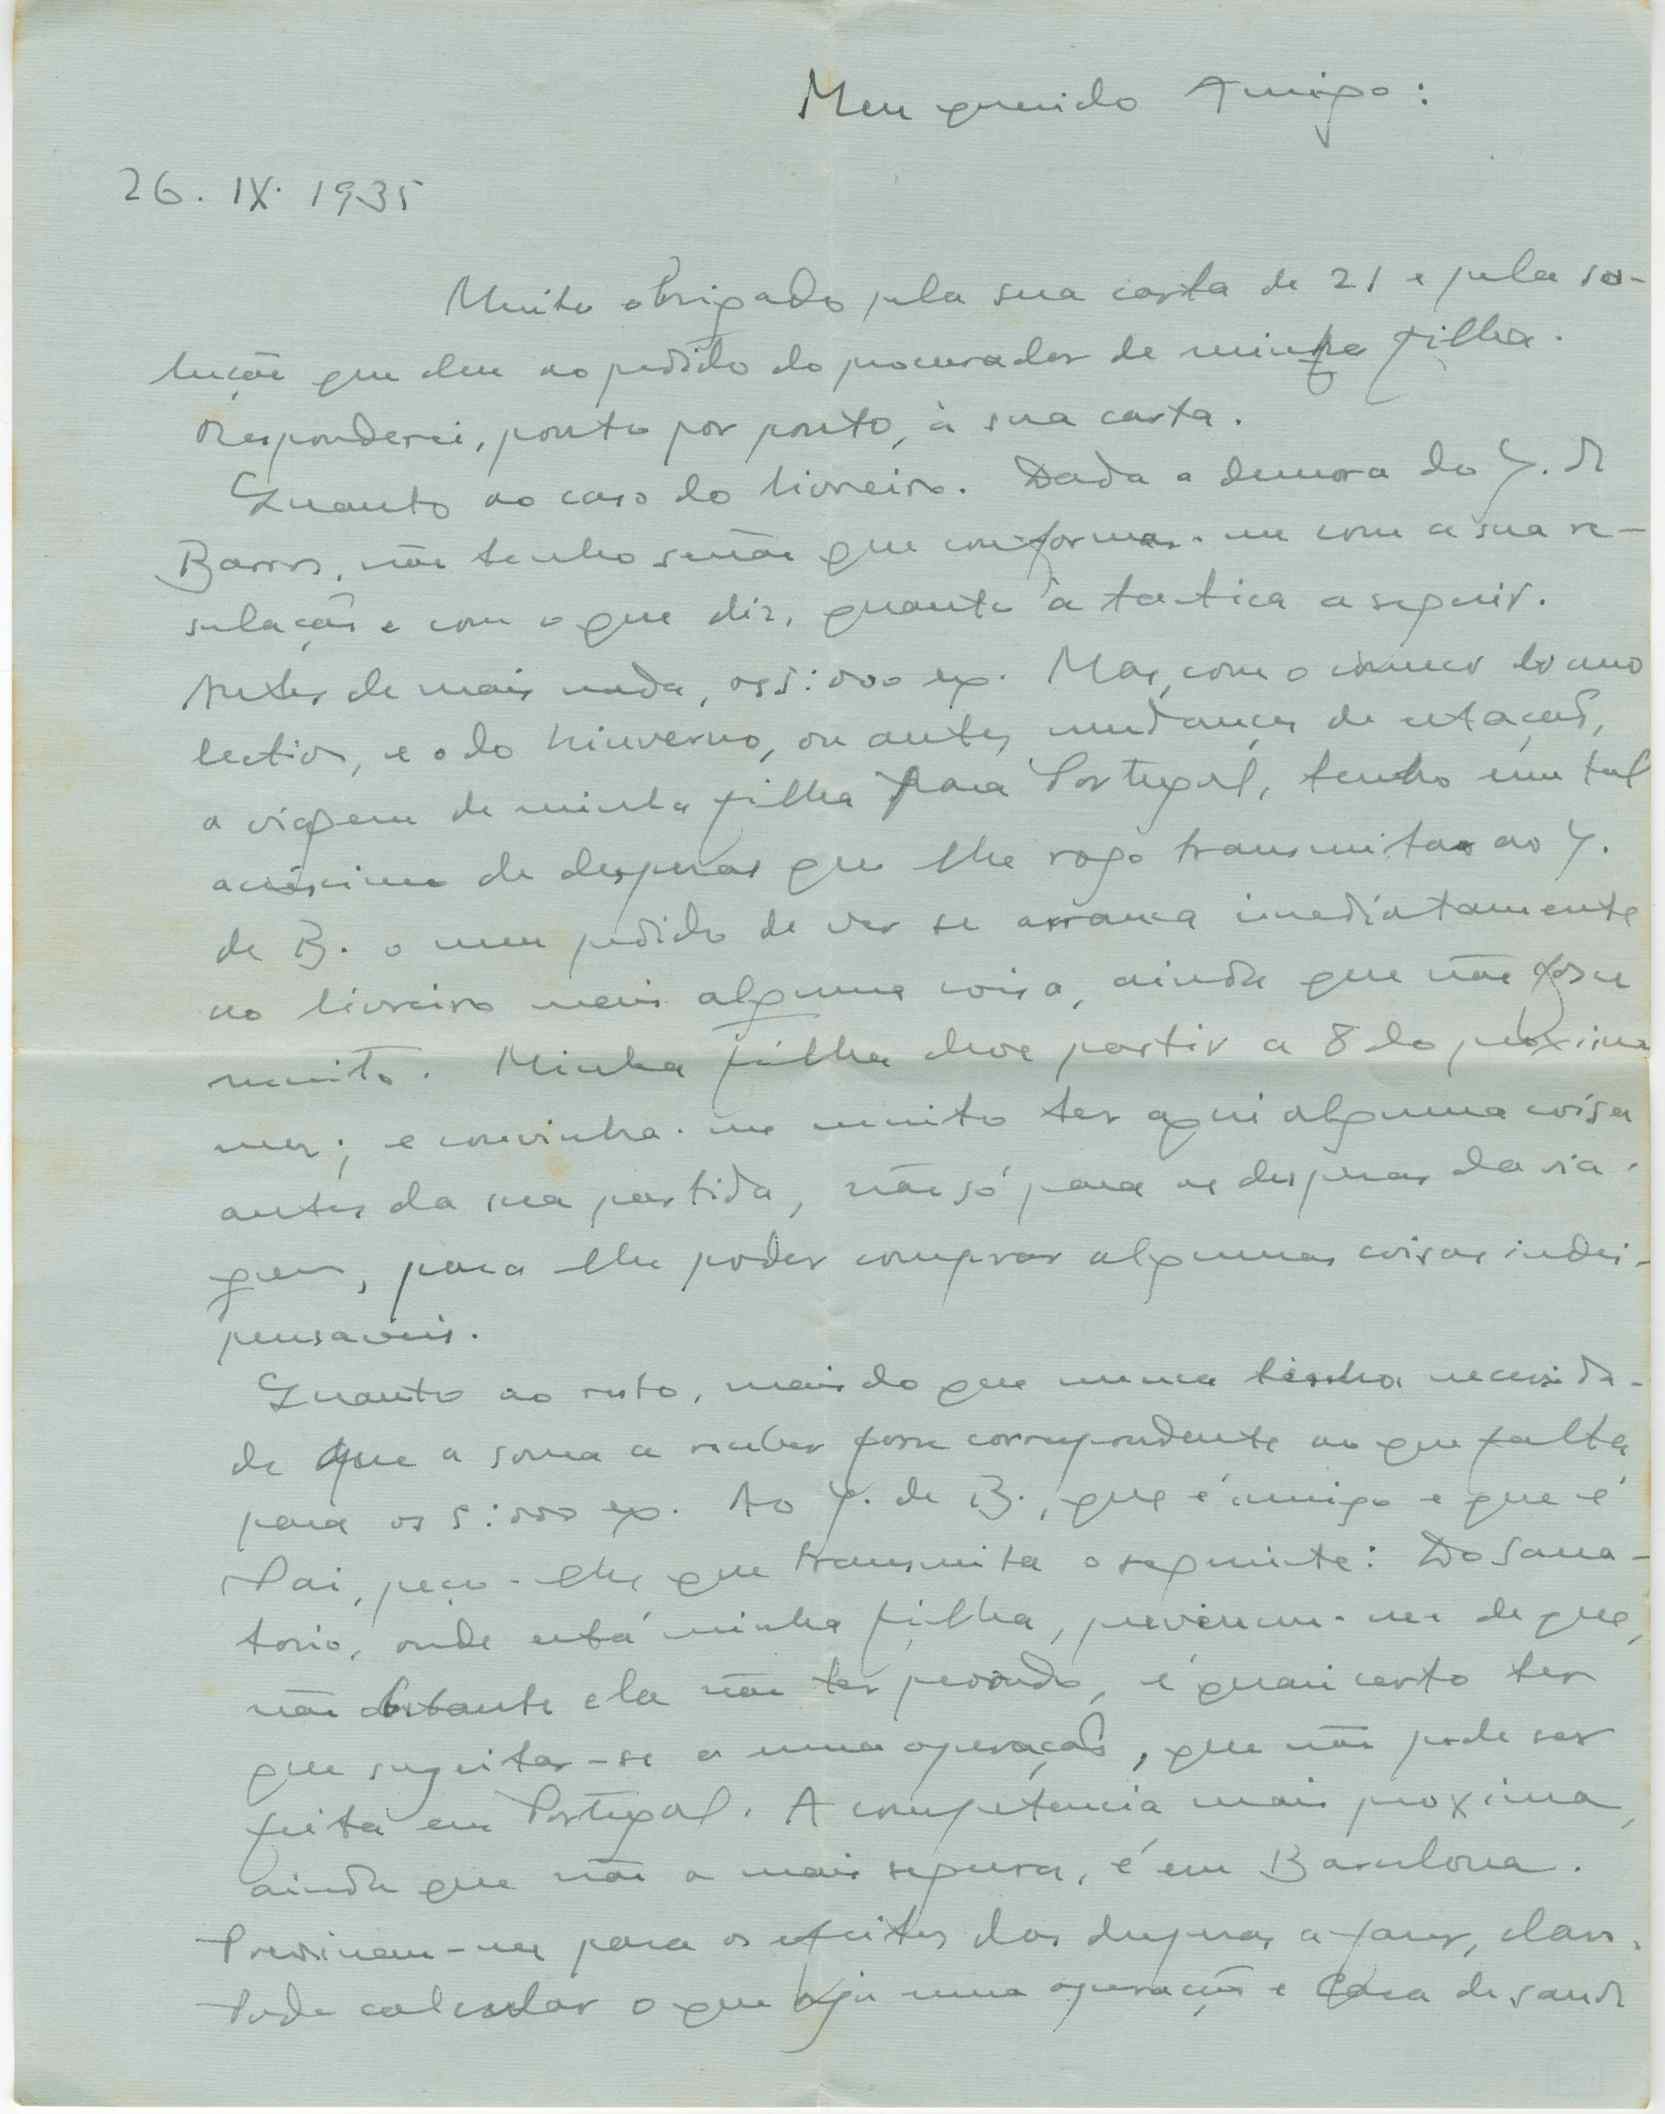 Meu querido Amigo:
26. IX. 1935
Muito obrigado pela sua carta de 21 e pela so-
lução que deu ao pedido do procurador de minha filha.
Responderei, ponto por ponto, à sua carta.
Quanto ao caso do livreiro. Dada a demora do J. de
Barros, não tenho senão que conformar-me com a sua re-
solução e com o que diz, quanto à tactica a seguir.
Antes de mais nada, os 5:000 ex. Mas, com o começo do ano
lectivo, e o do hinverno, ou antes, mudança de estação,
a viagem de minha filha para Portugal, tenho um tal
acréscimo de despesas que lhe rogo transmita ao J.
de B. o meu pedido de ver se arranca imediatamente
ao livreiro mais alguma coisa, ainda que não fosse
muito. Minha filha deve partir a 8 do próximo
mez; e convinha-me muito ter aqui alguma coisa
antes da sua partida, não só para as despesas da via-
gem, para lhe poder comprar algumas coisas indis-
pensaveis.
Quanto ao resto, mais do que nunca tenho necessida-
de que a soma a receber fosse correspondente ao que falta
para os 5:000 ex. Ao J. de B., que é amigo e que é
Pai, peço-lhe que transmita o seguinte: Do Sana-
torio, onde está minha filha, previnem-me de que,
não obstante ela não ter peorado, é quasi certo ter
que sugeitar-se a uma operação, que não pode ser
feita em Portugal. A competencia mais proxima,
ainda que não a mais segura, é em Barcelona.
Previnem-me para os efeitos das despesas a fazer, claro.
Pode calcular o que seja uma operação e Casa de saude